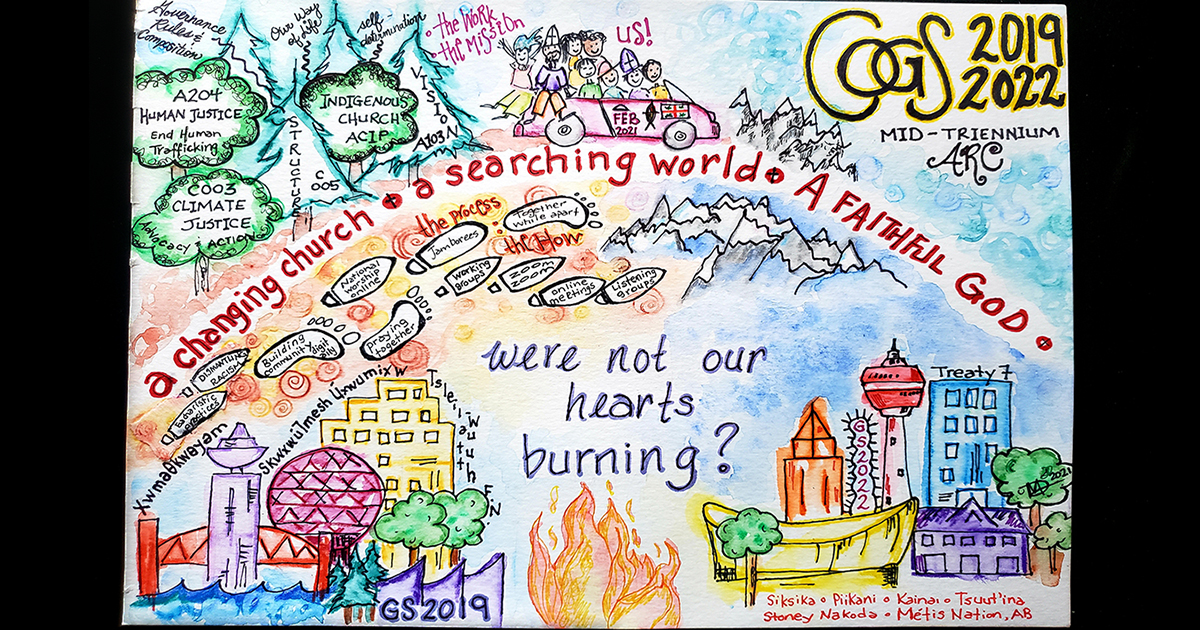 Governance
Rules &
Composition
Our Way
of Life
self-
determination
• the WORK
• the MISSION
US!
COGS 2019
2022
MID-TRIENNIUM
ARC
A204
HUMAN JUSTICE
End Human
Trafficking
INDIGENOUS
CHURCH
ACIP
VISION
A103
STRUCTURES
C
005
C003
CLIMATE
JUSTICE
Advocacy & ACTION
FEB
2021
a changing church • a searching world • A FAITHFUL GOD •
the process
the How
Together
while apart
Jamborees
National
worship
online
Working
groups
ZOOM
ZOOM
online
meetings
Listening
groups
DISMANTLING
RACISM
Building
community
digitally
praying
together
Eucharistic
practices
were not our
hearts
burning?
Skwxwúlmesh Úxwumixw
Tsleil-Waututh
F.N.
GS 2019
GS2022
Treaty 7
2021
Siksika • Piikani • Kainai • Tsuut'ina
Stoney Nakoda • Métis Nation, AB